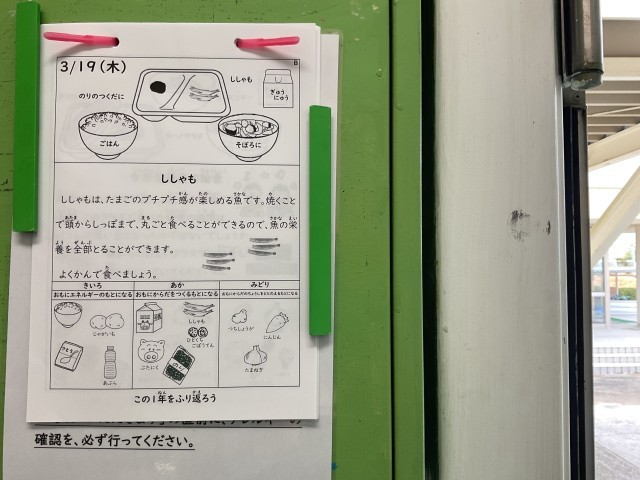 3/19(木)
B
ししゃも
のりのつくだに
ぎゅうにゅう
ごはん
そぼろに
ししゃも
ししゃもは、たまごのプチプチ感が楽しめる魚です。焼くこと
で頭からしっぽまで、丸ごと食べることができるので、魚の栄
養を全部とることができます。
よくかんで食べましょう。
きいろ
あか
みどり
おもにエネルギーのもとになる
おもにからだをつくるもとになる
おもにからだのちょうしをととのえるもとになる
じゃがいも
あぶら
ししゃも
ひとくち
ぶたにく
つちしょうが
にんじん
たまねぎ
この1年をふり返ろう
確認を、必ず行ってください。